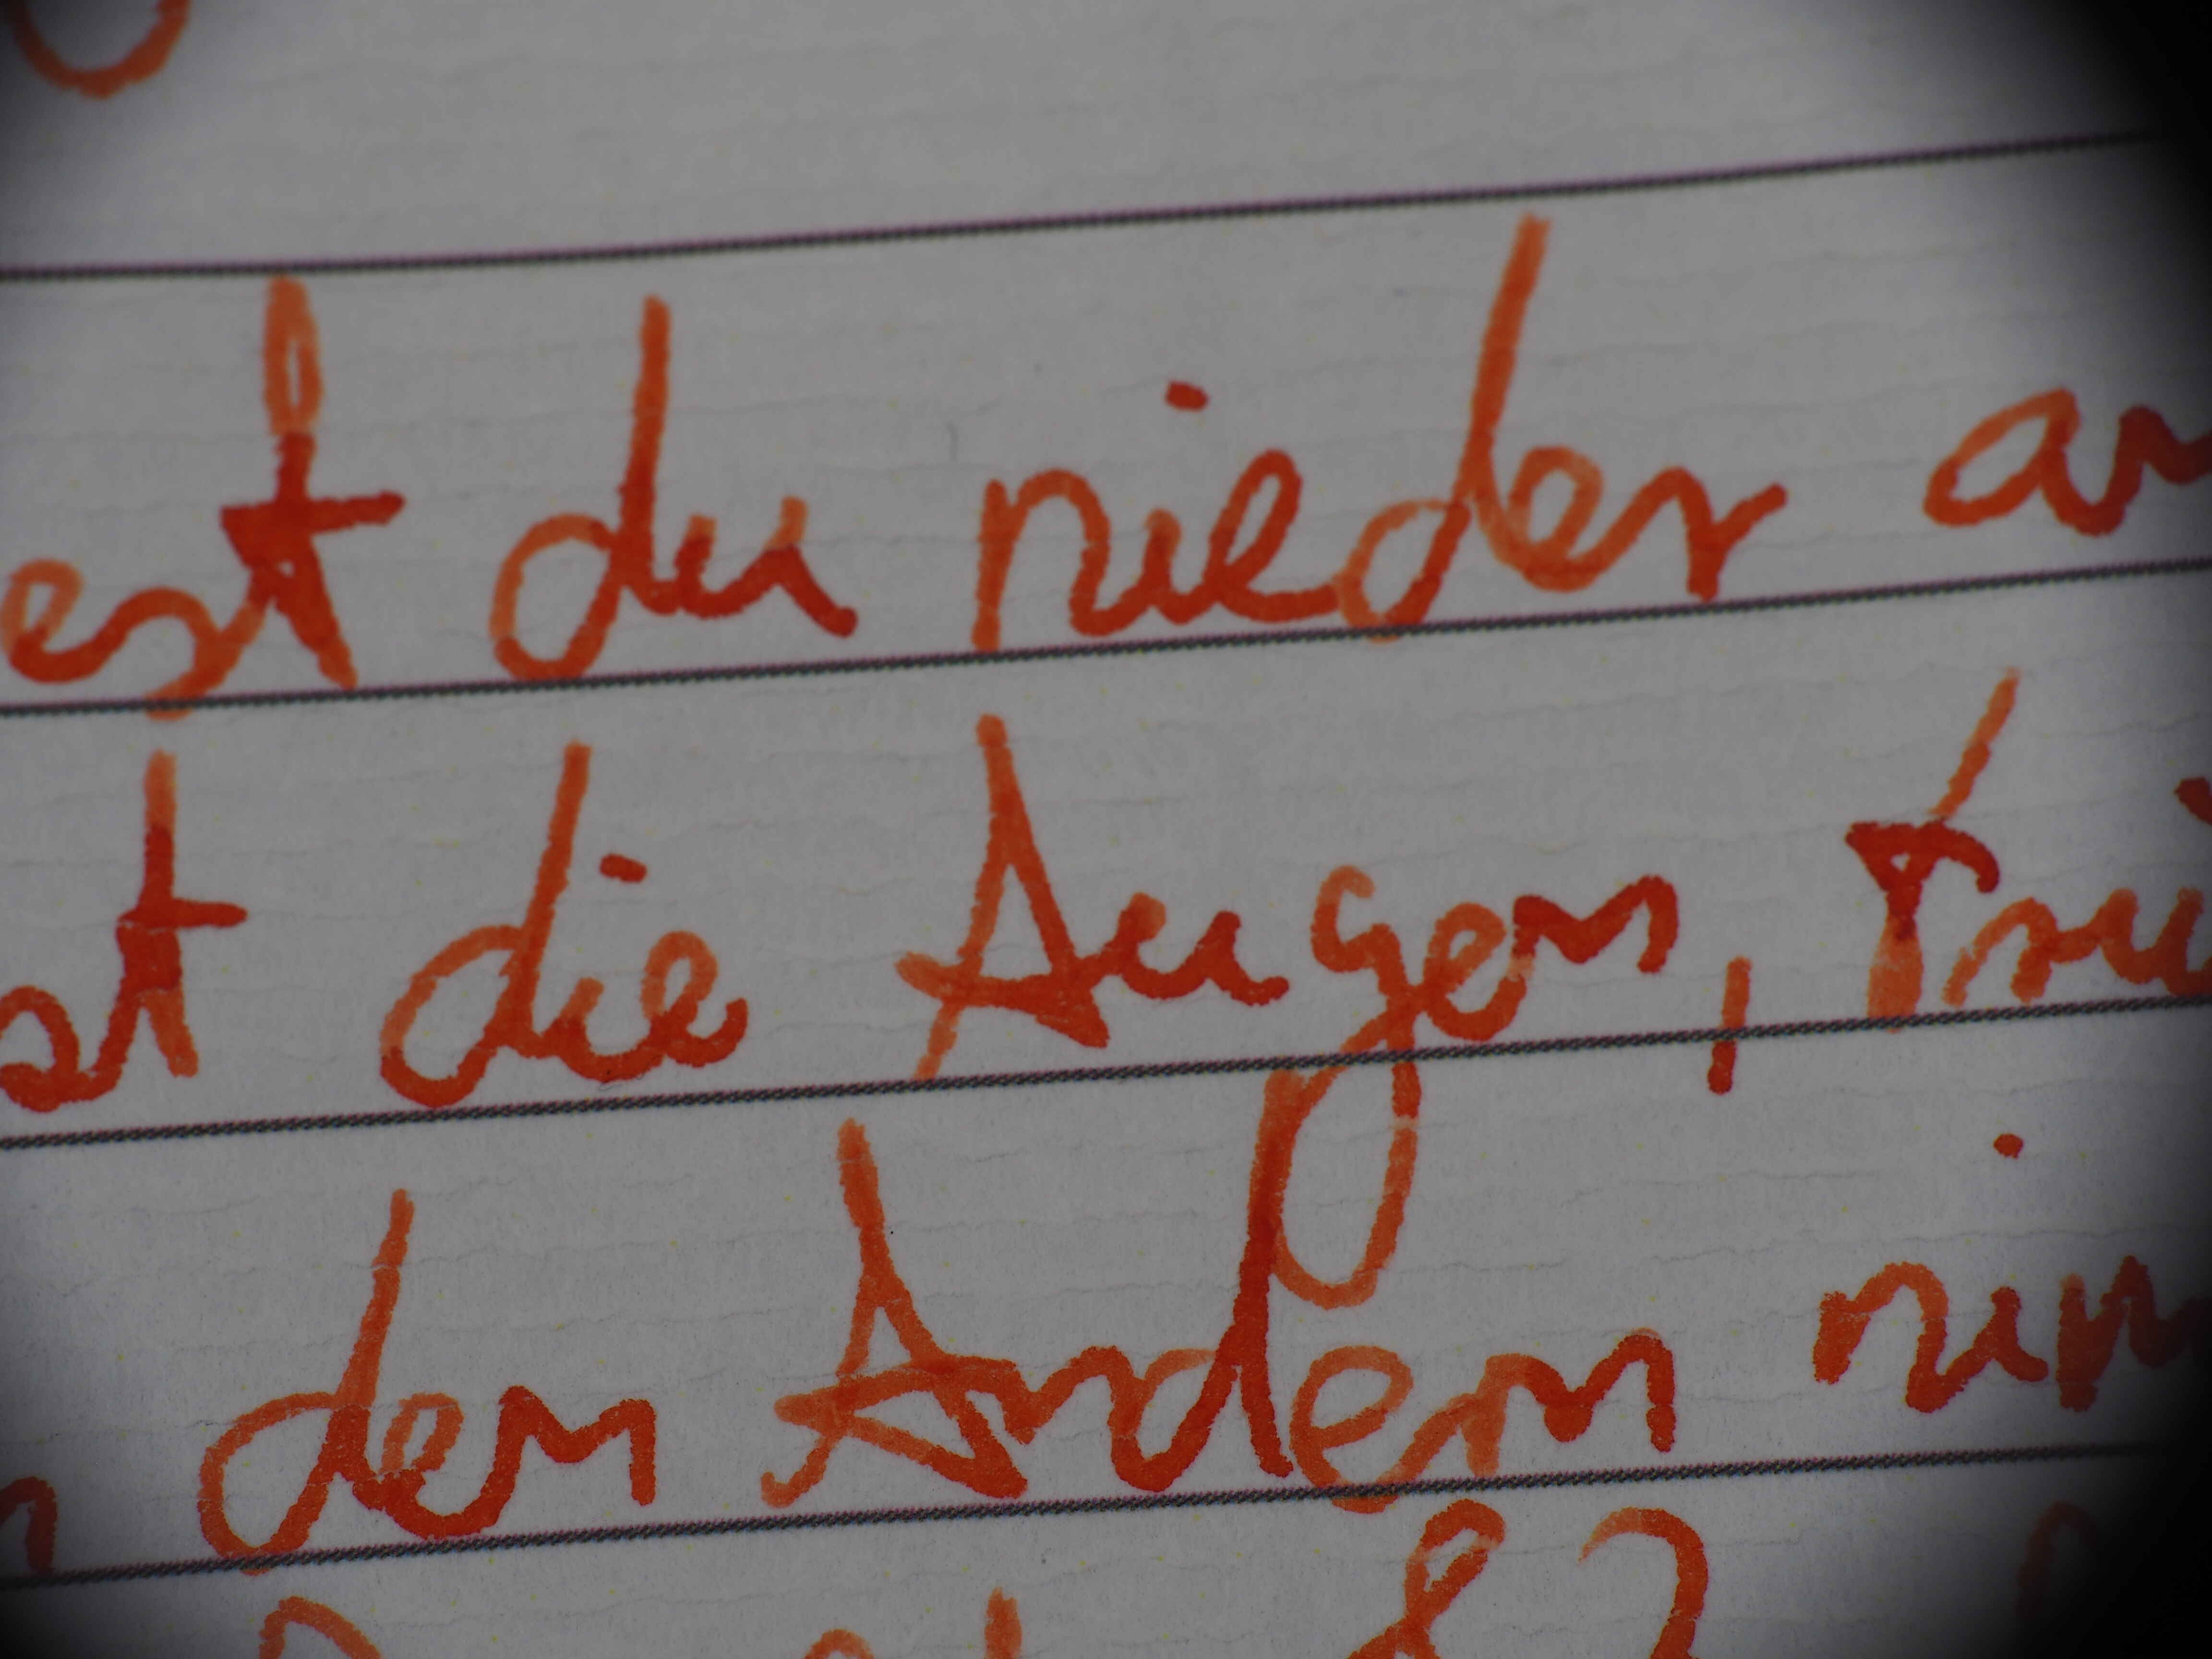 est du nieder an
st die Augen, trü
n den Andern nim